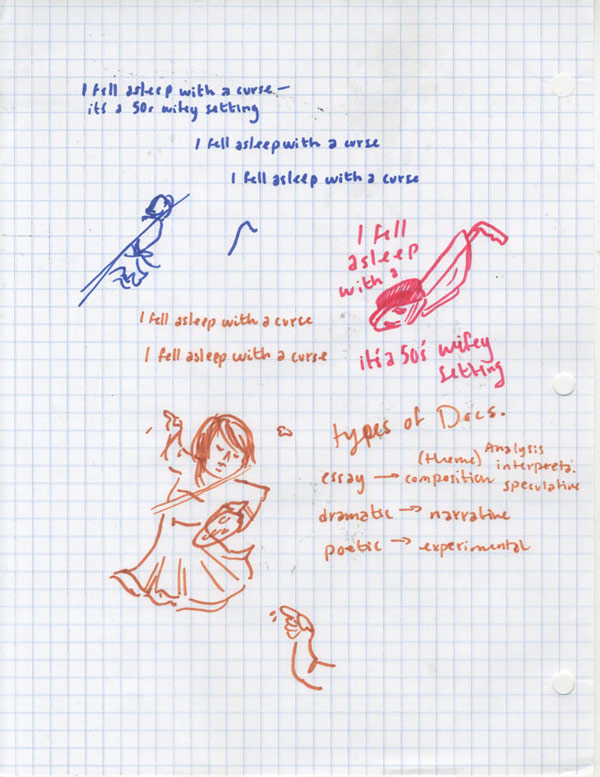 I fell asleep with a curse –
it's a 50s wifey setting
I fell asleep with a curse
I fell asleep with a curse
I fell
asleep
with a
it's a 50's wifey
setting
I fell asleep with a curce
I fell asleep with a curse
types of Docs.
(theme) Analysis
interpreta.
essay → composition speculative
dramatic → narrative
poetic → experimental